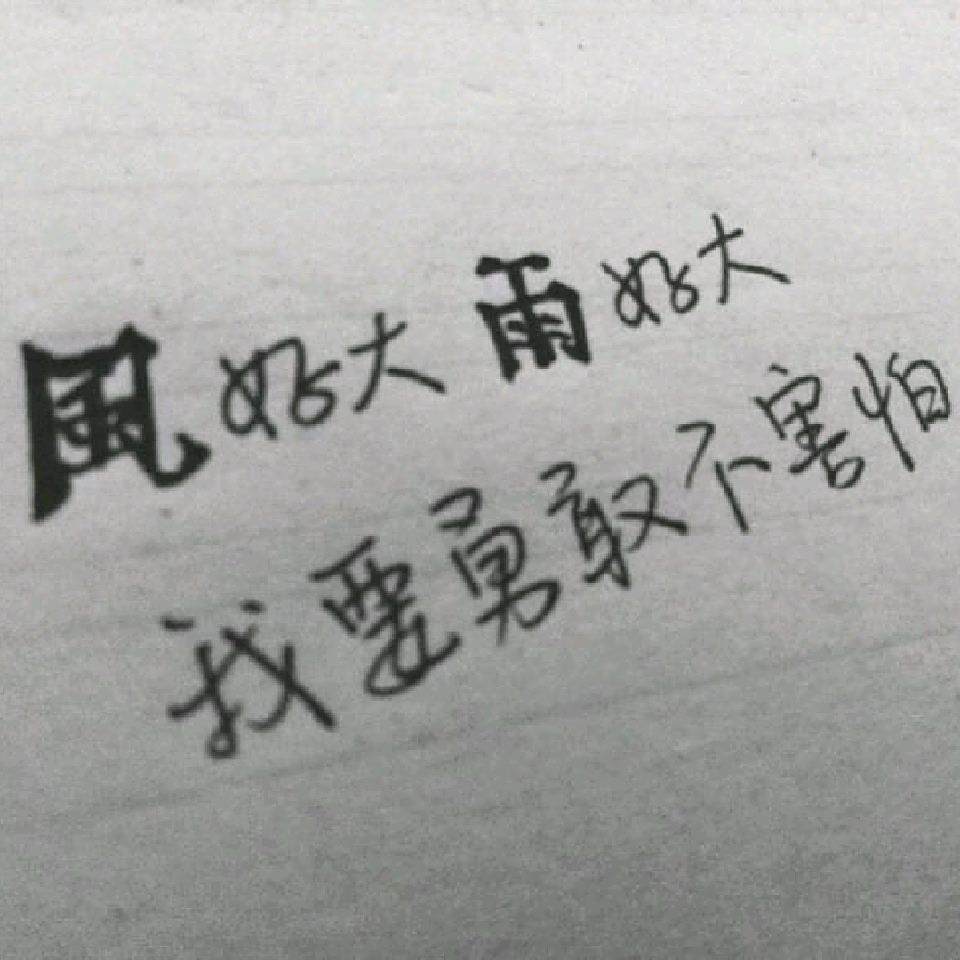 風好大雨好大
我要勇敢不害怕